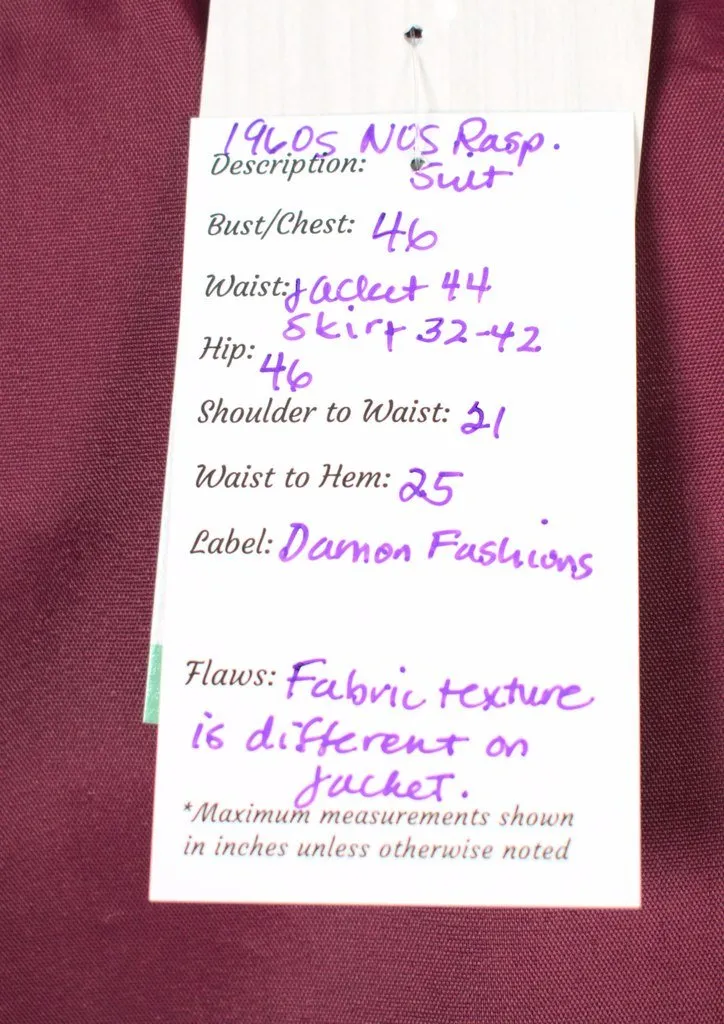 1960s NOS Rasp.
Description: Suit
Bust/Chest: 46
Waist: Jacket 44
Skirt 32-42
Hip: 46
Shoulder to Waist: 21
Waist to Hem: 25
Label: Damon Fashions
Flaws: Fabric texture
is different on
jacket.
*Maximum measurements shown
in inches unless otherwise noted